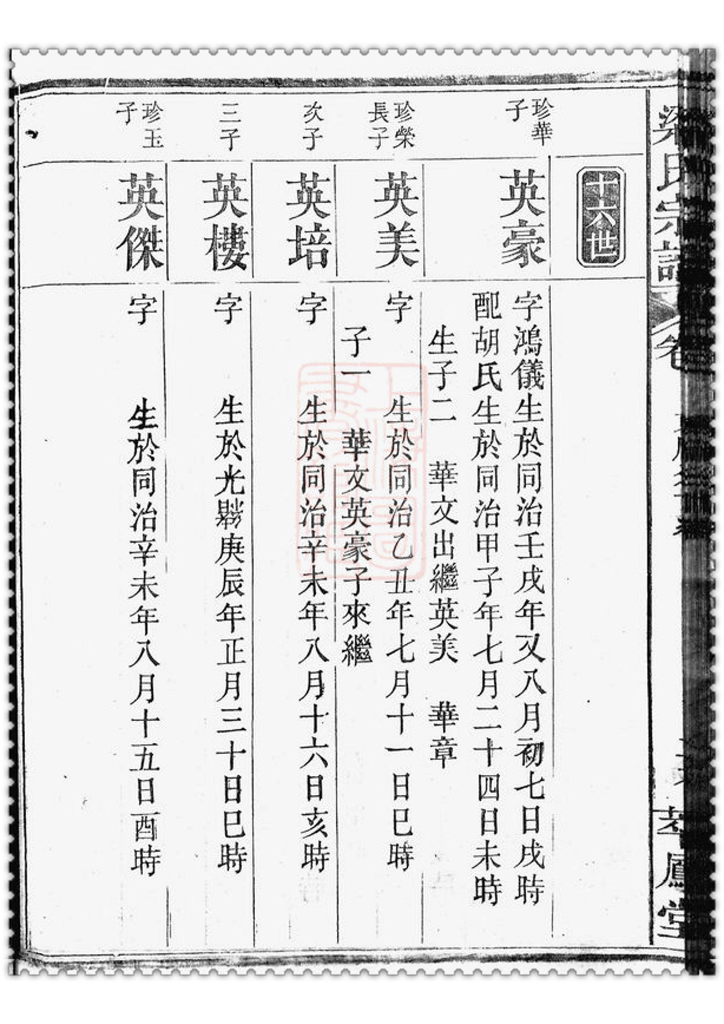 梁氏宗譜 卷
萃鳳堂
十六世
珍華子
英豪
字鴻儀生於同治壬戌年又八月初七日戌時
配胡氏生於同治甲子年七月二十四日未時
生子二 華文出繼英美 華章
珍榮長子
英美
字 生於同治乙丑年七月十一日巳時
子一 華文英豪子來繼
次子
英培
字 生於同治辛未年八月十六日亥時
三子
英樓
字 生於光緖庚辰年正月三十日巳時
珍玉子
英傑
字 生於同治辛未年八月十五日酉時